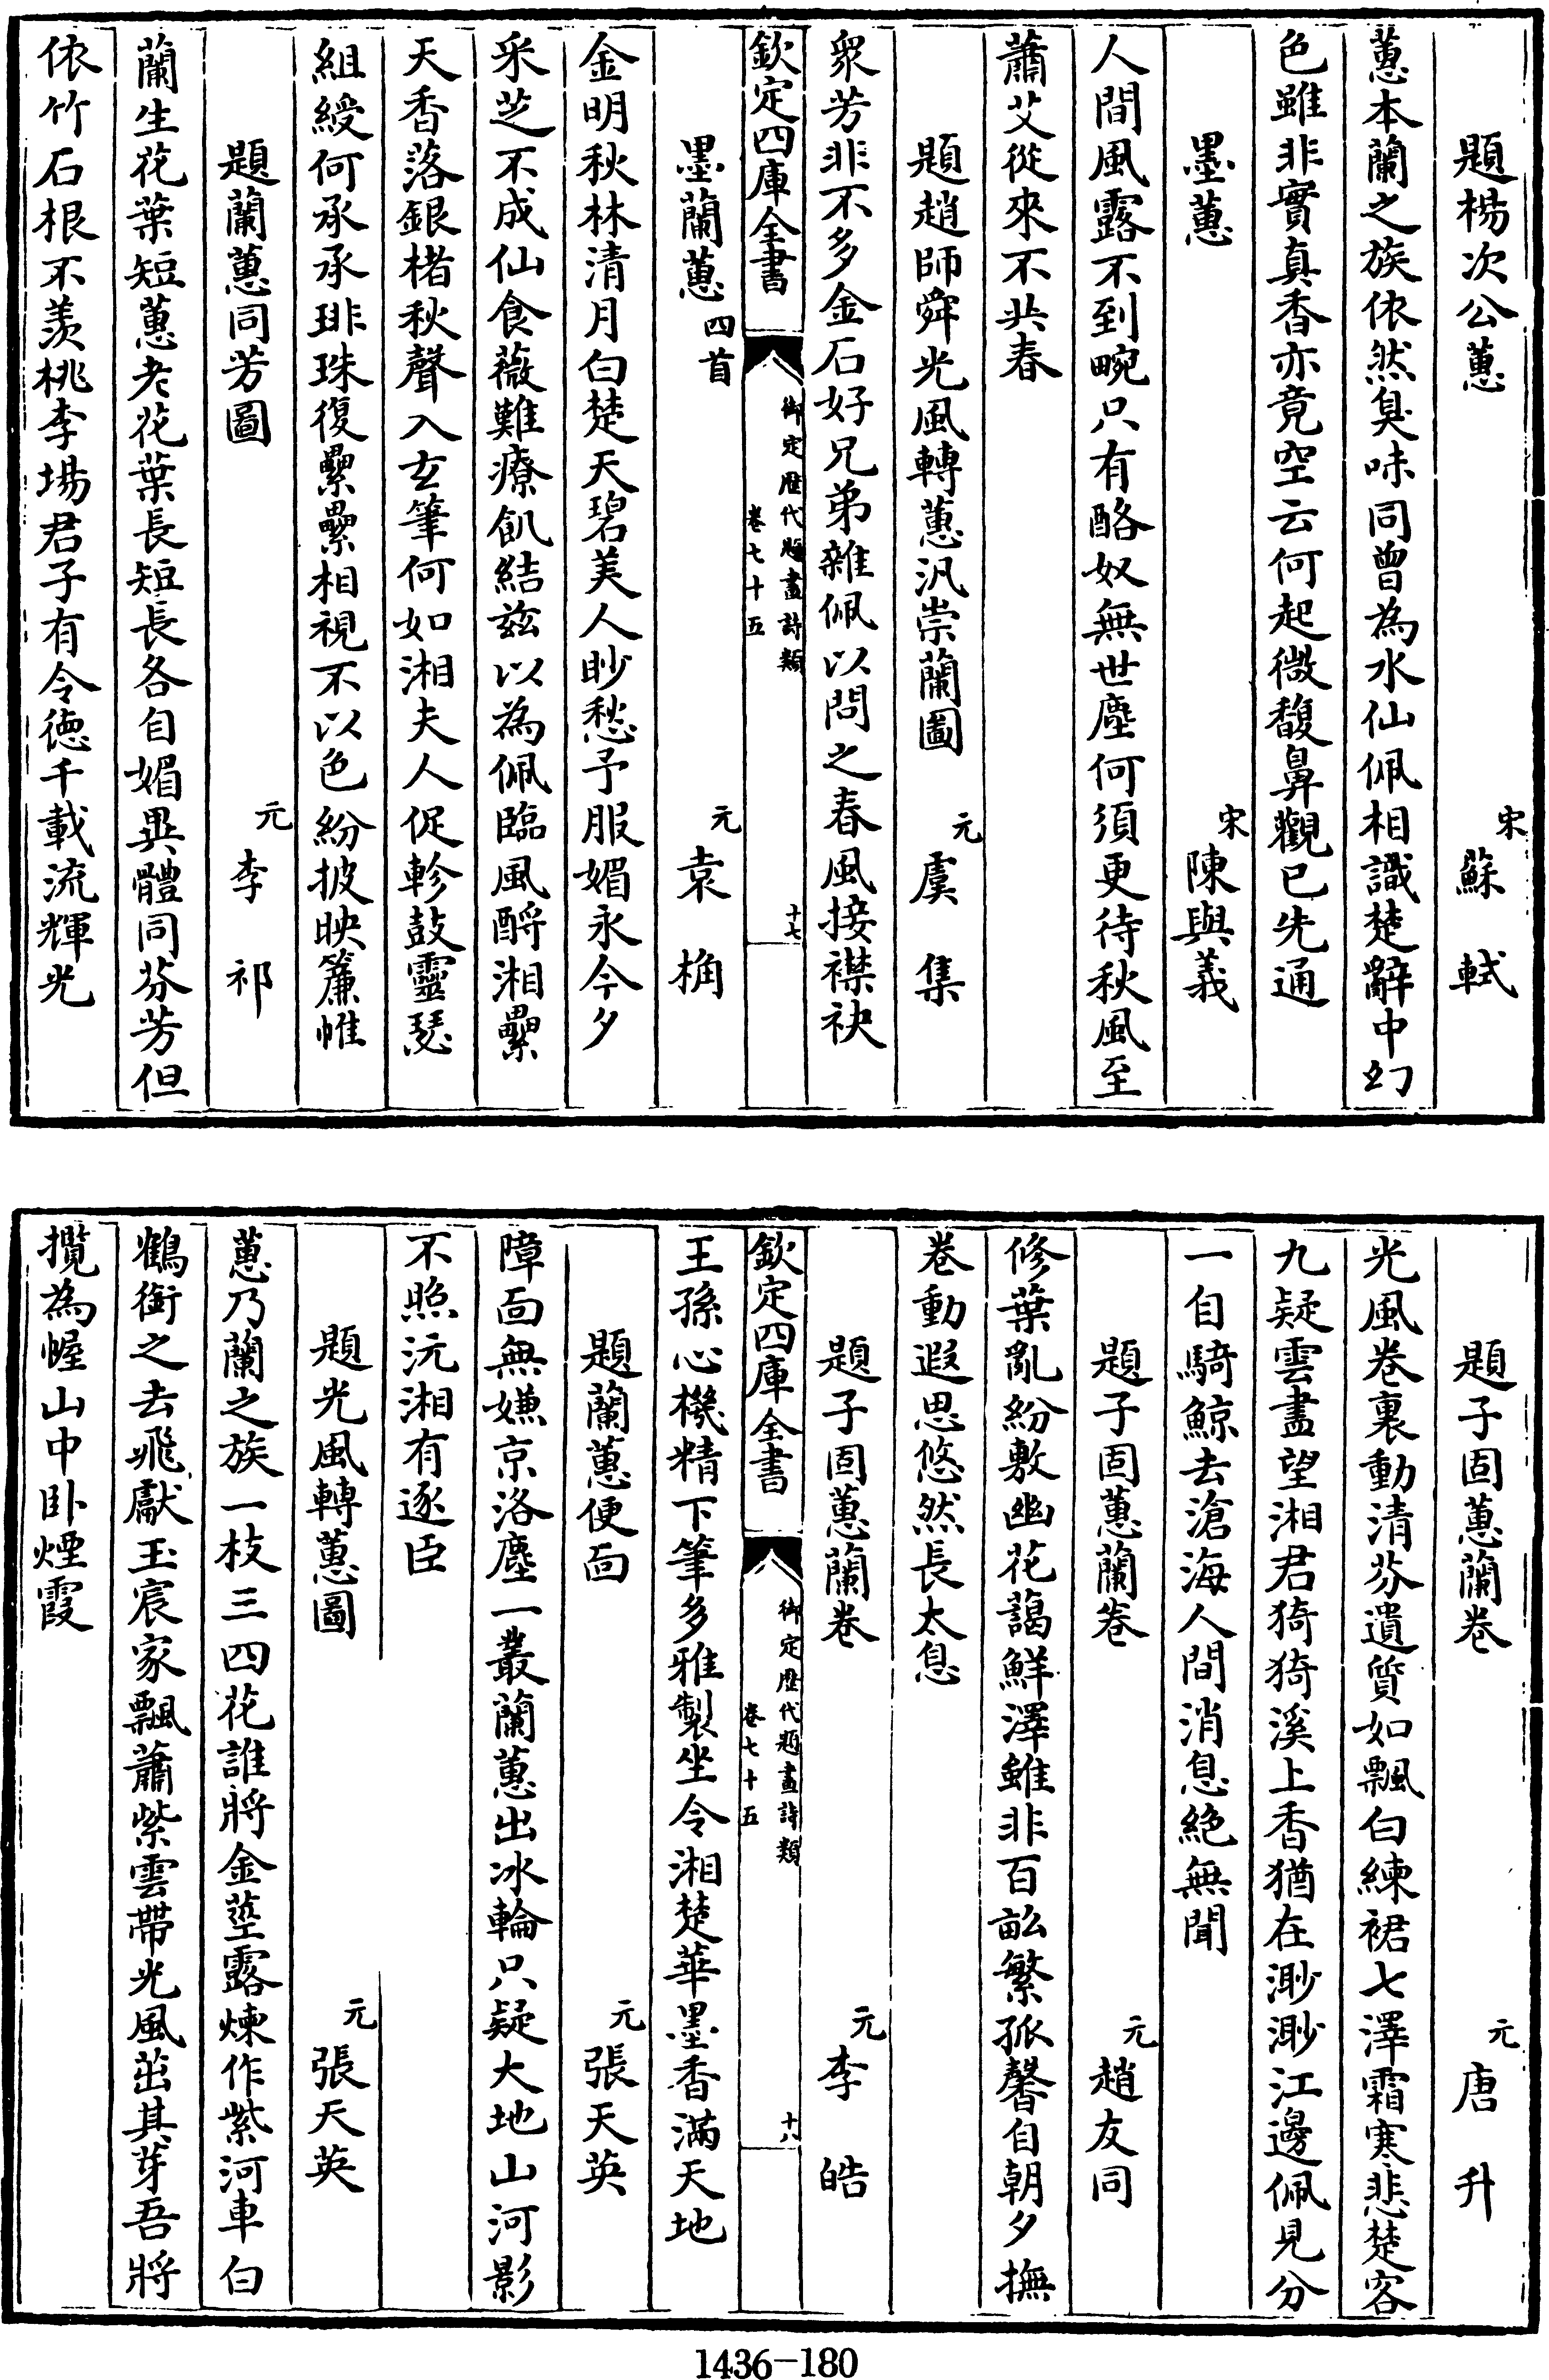 題楊次公蕙　宋蘇軾
蕙本蘭之族依然臭味同曾為水仙佩相識楚辭中幻
色雖非實真香亦竟空云何起微馥鼻觀已先通
墨蕙　宋陳與義
人間風露不到畹只有酪奴無世塵何須更待秋風至
蕭艾從來不共春
題趙師舜光風轉蕙汎崇蘭圖　元虞集
衆芳非不多金石好兄弟雜佩以問之春風接襟袂
欽定四庫全書　御定歴代題畫詩類卷七十五　十七
墨蘭蕙四首　元袁桷
金明秋林清月白楚天碧美人眇愁予服媚永今夕
采芝不成仙食薇難療飢結兹以為佩臨風酹湘纍
天香落銀楮秋聲入玄筆何如湘夫人促軫鼓靈瑟
組綬何承承琲珠復纍纍相視不以色紛披映簾帷
題蘭蕙同芳圖　元李祁
蘭生花葉短蕙老花葉長短長各自媚異體同芬芳但
依竹石根不羨桃李場君子有令徳千載流輝光
題子固蕙蘭卷　元唐升
光風卷裏動清芬遺質如飄白練裙七澤霜寒悲楚客
九疑雲盡望湘君猗猗溪上香猶在渺渺江邊佩見分
一自騎鯨去滄海人間消息絶無聞
題子固蕙蘭卷　元趙友同
修葉亂紛敷幽花藹鮮澤雖非百畝繁孤馨自朝夕撫
卷動遐思悠然長太息
題子固蕙蘭卷　元李皓
欽定四庫全書　御定歴代題畫詩類卷七十五　十八
王孫心機精下筆多雅製坐令湘楚華墨香滿天地
題蘭蕙便面　元張天英
障面無嫌京洛塵一叢蘭蕙出冰輪只疑大地山河影
不照沅湘有逐臣
題光風轉蕙圖　元張天英
蕙乃蘭之族一枝三四花誰將金莖露煉作紫河車白
鶴銜之去飛獻玉宸家飄蕭紫雲帶光風茁其芽吾將
攬為幄山中卧煙霞
1436-180